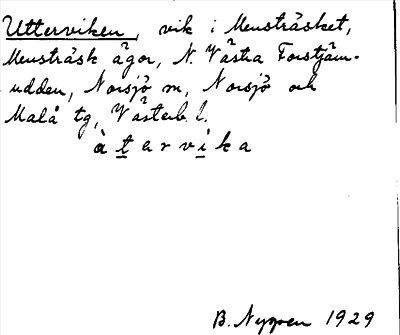 Utterviken, vik i Mensträsket,
Mensträsk ägor, N. Västra Forstjärn-
udden, Norsjö sn, Norsjö och
Malå tg, Västerb. l.
àtervika
B. Nygren 1929